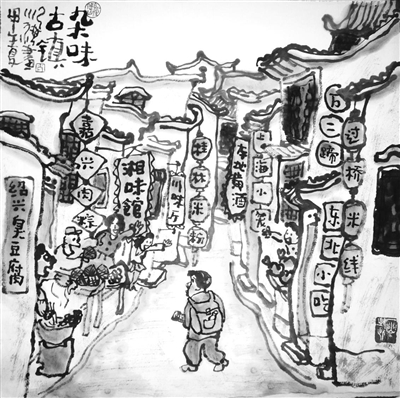 杂味
古镇
甲午夏
嘉兴肉粽
绍兴臭豆腐
湘味馆
桂林米粉
本地黄酒
上海小笼
万三蹄
过桥米线
东北小吃